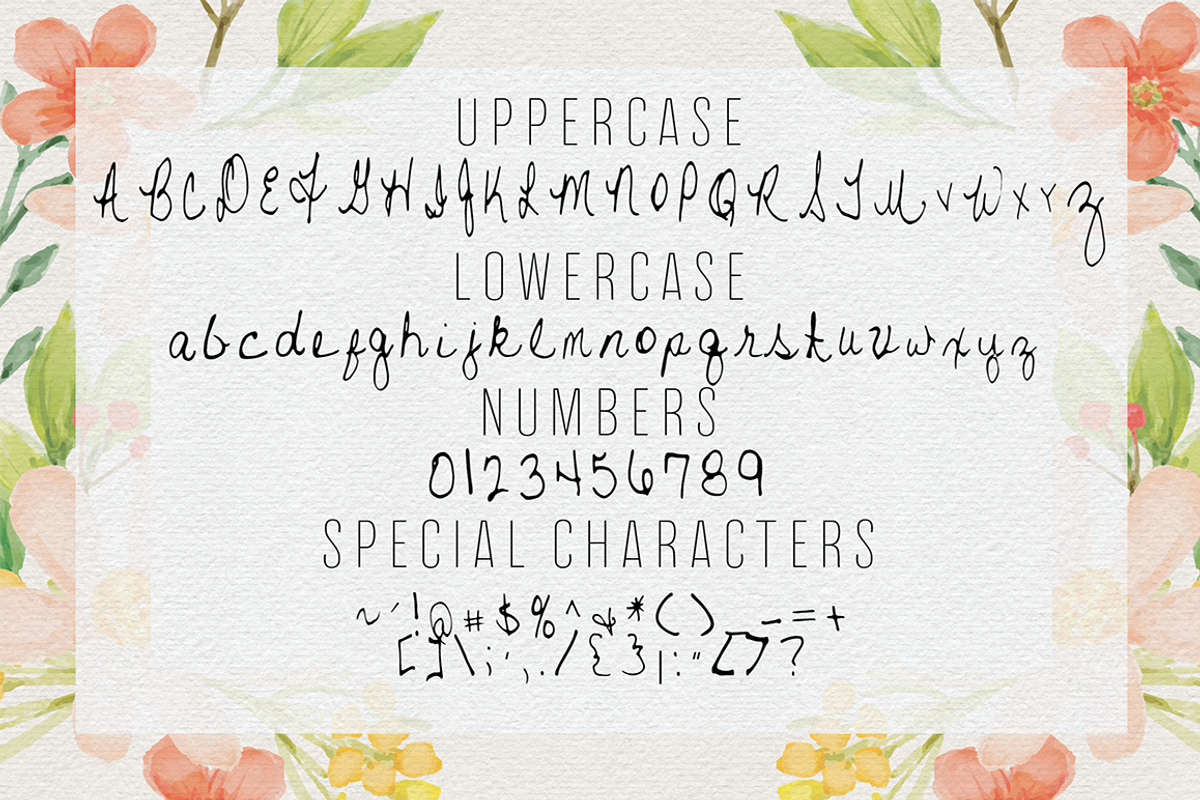 UPPERCASE
A B C D E F G H I J K L M N O P Q R S T U V W X Y Z
LOWERCASE
a b c d e f g h i j k l m n o p q r s t u v w x y z
NUMBERS
0 1 2 3 4 5 6 7 8 9
SPECIAL CHARACTERS
~ ´ ! @ # $ % ^ & * ( ) _ = +
[ ] \ ; ' , . / { } | : " [ ] ?